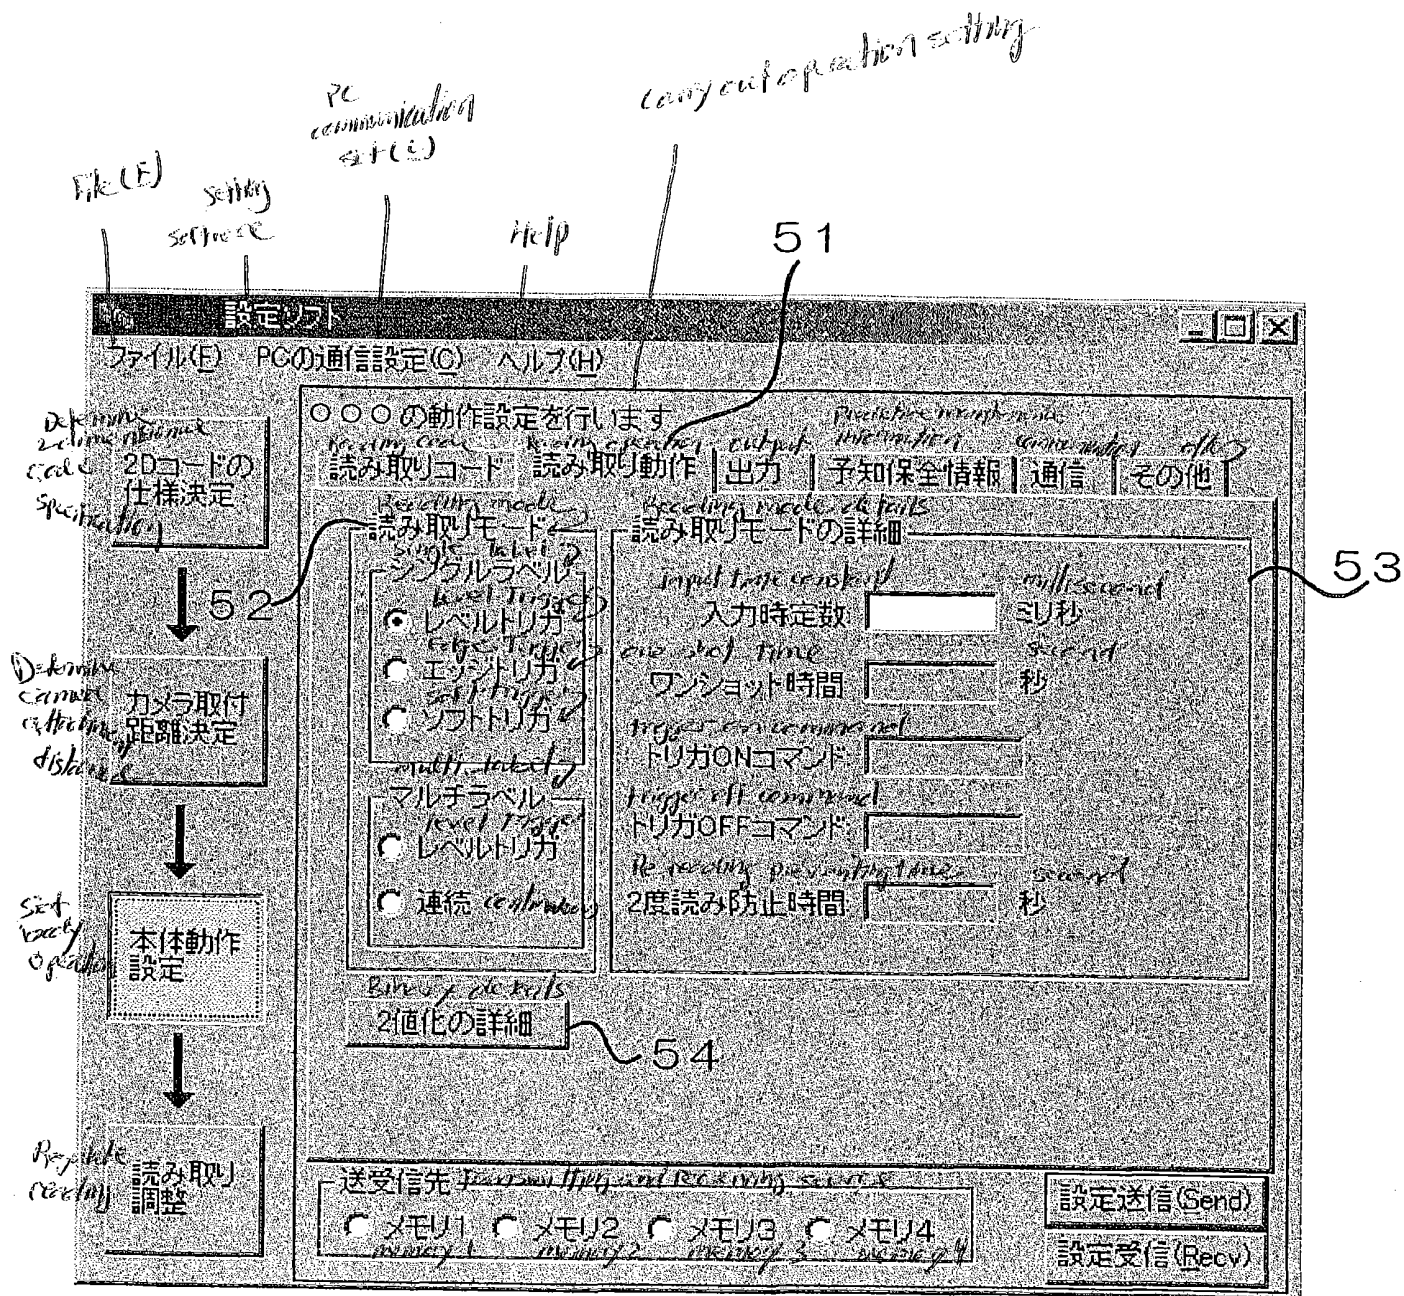 carry out operation setting
PC
communication
set (C)
File (F)
setting
software
Help
51
設定ソフト
ファイル(F) PCの通信設定(C) ヘルプ(H)
○○○の動作設定を行います
Reading code Reading operation output information
読み取りコード 読み取り動作 出力 予知保全情報 通信 その他
Determine
2-dimensional
code
specification
2Dコードの
仕様決定
52
Reading mode
読み取りモード
single label
シングルラベル
Level Trigger
レベルトリガ
Edge Trigger
エッジトリガ
soft trigger
ソフトトリガ
multi label
マルチラベル
level Trigger
レベルトリガ
連続 continuous
Reading mode details
読み取りモードの詳細
53
input time constant millisecond
入力時定数 ミリ秒
one shot time second
ワンショット時間 秒
trigger on command
トリガONコマンド
trigger off command
トリガOFFコマンド
Re-reading preventing time second
2度読み防止時間 秒
Determine
camera
attachment
distance
カメラ取付
距離決定
Set
body
operation
本体動作
設定
Binary details
2値化の詳細
54
Regulate
reading
読み取り
調整
送受信先 transmitting and receiving source
メモリ1 メモリ2 メモリ3 メモリ4
memory 1 memory 2 memory 3 memory 4
設定送信(Send)
設定受信(Recv)